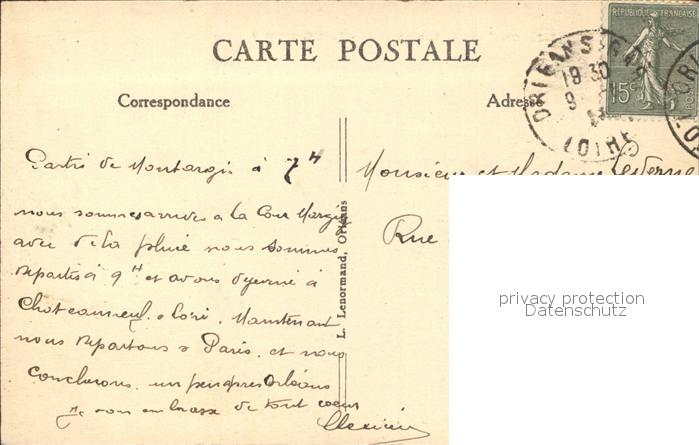 CARTE POSTALE
Correspondance
Adresse
RÉPUBLIQUE FRANÇAISE
15c
ORLEANS-GARE
18 30
9
LOIRET
Partis de Montargis à 7H
nous sommes arrivés à la Cour Marigny
avec de la pluie nous sommes
repartis à 9H et avons déjeuné à
Chateauneuf s Loire. Maintenant
nous repartons s Paris, et nous
coucherons un peu après Orléans
Je vous embrasse de tout coeur
L. Lenormand, Orléans
Monsieur et Madame
Rue
privacy protection
Datenschutz